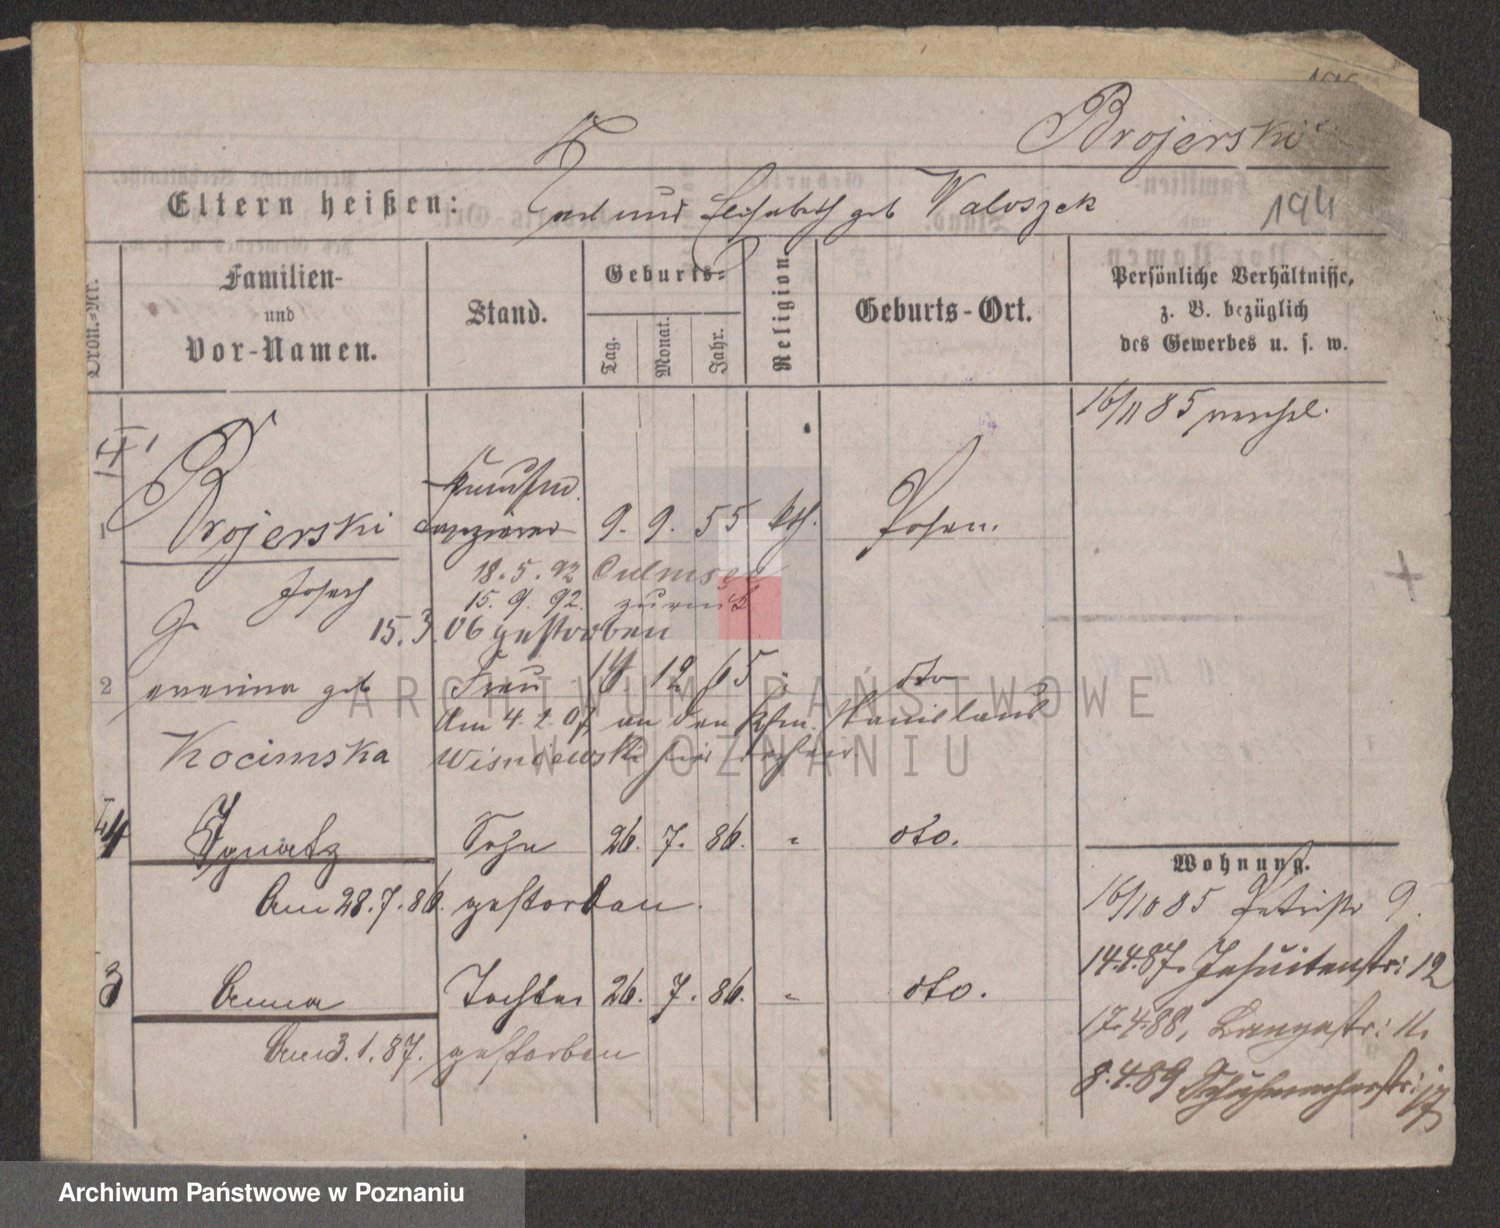 Brojerski
Eltern heißen: Carl und Elisabeth geb Waloszek 194
Ordn.-Nr.
Familien-
und
Vor-Namen.
Stand.
Geburts-
Tag.
Monat.
Jahr.
Religion
Geburts-Ort.
Persönliche Verhältnisse,
z. B. bezüglich
des Gewerbes u. s. w.
16/11 85
1 Brojerski 9. 9. 55 kth. Posen.
Joseph
18. 5. 92 Culmsee
15. 9. 92. zurück
15. 3. 06 gestorben
2 geb Frau 12 65 dto
Am 4. 2. 07 an den Kfm. Stanislaus
Kocimska Wisniewski
4 Ignatz Sohn 26. 7. 86. " dto.
Am 28. 7. 86. gestorben.
3 Anna Tochter 26. 7. 86. " dto.
Am 3. 1. 87. gestorben
Wohnung.
16/10 85 Petristr 9.
14.4.87. Jesuitenstr: 12
17.4.88, Langestr: 11.
8.4.89 Schuhmacherstr: 17
ARCHIWUM PAŃSTWOWE
W POZNANIU
Archiwum Państwowe w Poznaniu